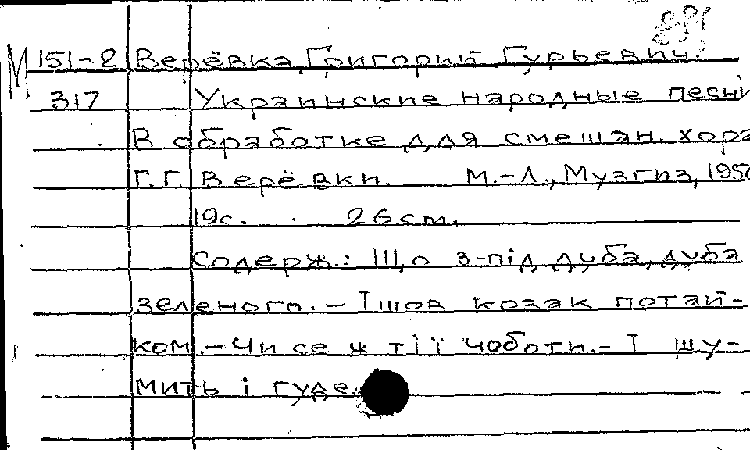 М 151-2 Верёвка, Григорий Гурьевич.
317 Украинские народные песни
в обработке для смешан. хора
Г.Г. Верёвки. М.-Л., Музгиз,
19с. 26 см.
Содерж.: Що з-під дуба, дуба
зеленого. - Ішов козак потай-
ком. - Чи се ж тії чоботи. - І шу-
мить і гуде.